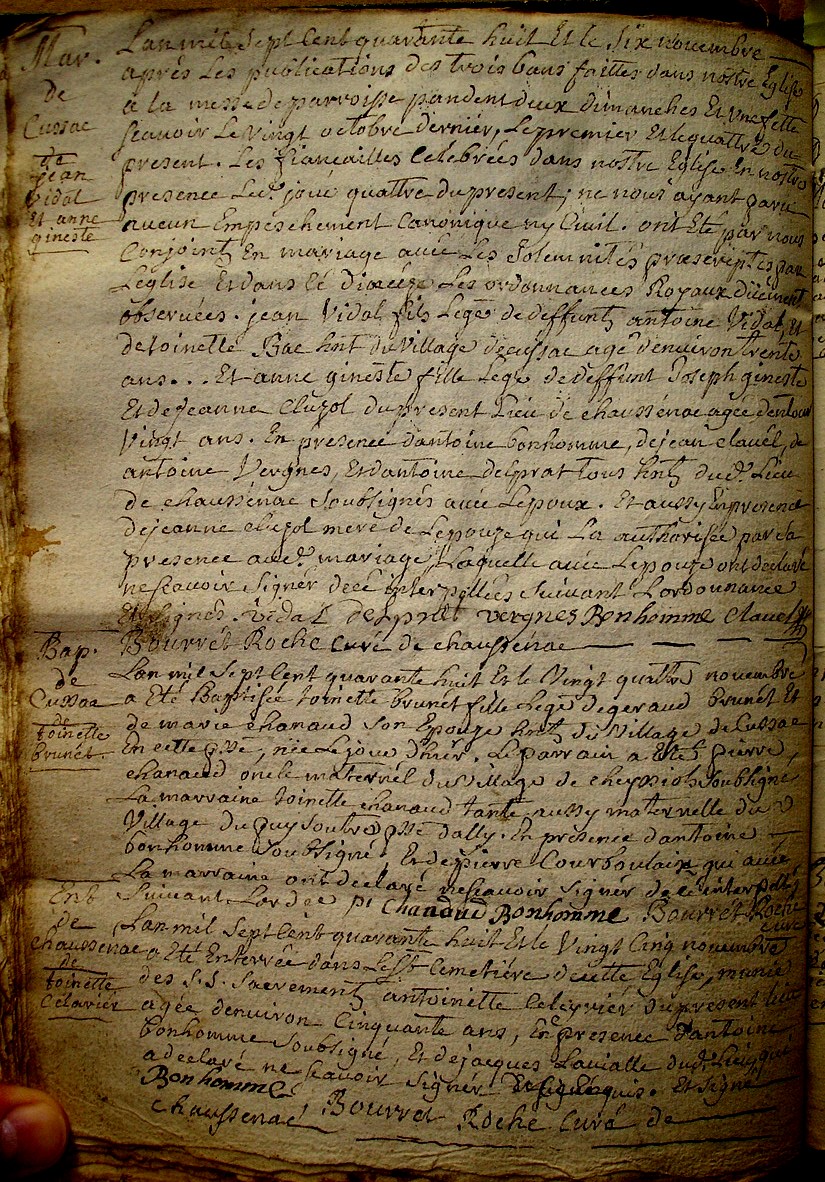 Mar.
de
Cussac
de
jean
Vidal
Et anne
gineste
Lan mil Sept Cent quarante huit Et le Six novembre
aprés Les publications des trois bans faittes dans nostre Eglise
a la messe de parroisse pandent deux dimanches Et Une fette
scavoir Le Vingt octobre dernier, Le premier Et le quattre du
present. Les fiancailles Celebrées dans nostre Eglise En nostre
presence Led. jour quattre du present; ne nous ayant paru
aucun Empéchement Canonique ny Civil. ont Eté par nous
Conjoints En mariage avec Les Solemnités præscriptes par
Léglise Et dans Le diocèze Les ordonnances Royaux düement
observées. jean Vidal fils Legé de deffunts antoine Vidal, Et
de toinette Bac hnt du Village de Cussac agé d'environ trente
ans... Et anne gineste fille Legé de deffunt Joseph gineste
Et de jeanne Cluzol du present Lieu de chaussénac agée denviron
Vingt ans. En presence dantoine bonhomme, de jean clavel, de
antoine Vergnes, Et dantoine delprat tous hnts dud. Lieu
de chaussénac Soubsignés avec Lepoux. Et aussy En presence
de jeanne cluzol mere de Lepouze qui La authorisée par Sa
presence aud. mariage, Laquelle avec Lepouze ont declaré
ne scavoir Signer de ce interpellées suivant Lordonnance
Et Signés. Vidal delprat vergnes Bonhomme Clavel
Bourret Roche Curé de chaussénac
Bap.
de
Cussac
de
toinette
brunét.
Lan mil Sept Cent quarante huit Et le Vingt quattre novembre
a Eté Baptisée toinette brunét fille Legé de geraud brunét Et
de marie chanaud son Epouze hnts du Village de Cussac
En cette psse, née Le jour d'hiér. Le parrain a Eté pierre
chanaud oncle maternél du Village de cheyssiols Soubsigné
La marraine toinette chanaud tante aussy maternelle du
Village du puy Soutro psse dally. En presence dantoine
bonhomme Soubsigné, Et de pierre Courboulaix qui avec
La marraine ont declaré ne scavoir signér de ce interpellés
Suivant Lordce pr Chanaud Bonhomme Bourret Roche
curé
Ent
de
chaussenac
de
toinette
Celarier
Lan mil Sept Cent quarante huit Et le Vingt Cinq novembre
a Eté Enterrée dans Cemetiére de cette Eglise, munie
des S.S. Sacrements antoinette Celeyrier du present lieu
agée denviron Cinquante ans, En presence d'antoine
bonhomme Soubsigné, Et de jacques Lavialle dud. Lieu, qui
a declaré ne scavoir Signér de ce Enquis. Et Signé
Bonhomme Bourret Roche Curé de
chaussenac